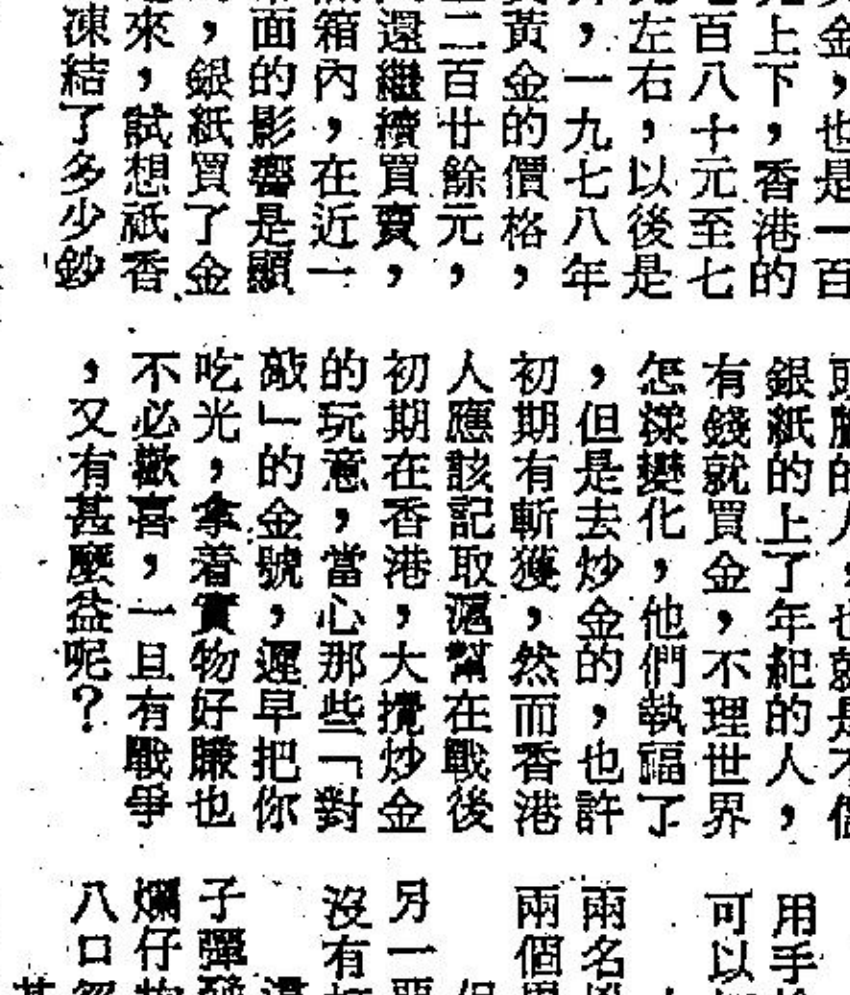 金，也是一百
上下，香港的
百八十元至七
左右，以後是
，一九七八年
黃金的價格，
二百廿餘元，
還繼續買賣，
箱內，在近一
面的影響是顯
，銀紙買了金
來，試想祗香
凍結了多少鈔
銀紙的上了年紀的人，
有錢就買金，不理世界
怎樣變化，他們執福了
，但是去炒金的，也許
初期有斬獲，然而香港
人應該記取滬幫在戰後
初期在香港，大攪炒金
的玩意，當心那些「對
敲」的金號，遲早把你
吃光，拿着實物好賺也
不必歡喜，一旦有戰爭
，又有甚麼益呢？
用手
可以
兩名
兩個
另一
沒有
子彈
爛仔
八口